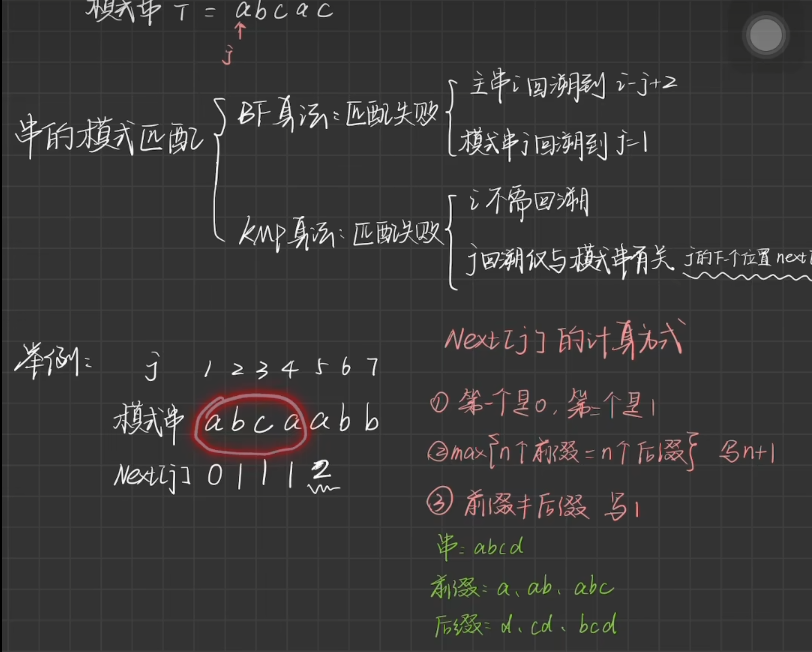 模式串 T = a b c a c
j
串的模式匹配
BF算法：匹配失败
主串i回溯到 i-j+2
模式串j回溯到 j=1
KMP算法：匹配失败
i不需回溯
j回溯仅与模式串有关 j的下个位置next
举例： j 1 2 3 4 5 6 7
模式串 a b c a a b b
Next[j] 0 1 1 1 2
Next[j]的计算方式
① 第一个是0，第二个是1
②max{n个前缀=n个后缀} 写n+1
③ 前缀≠后缀 写1
串：abcd
前缀：a、ab、abc
后缀：d、cd、bcd